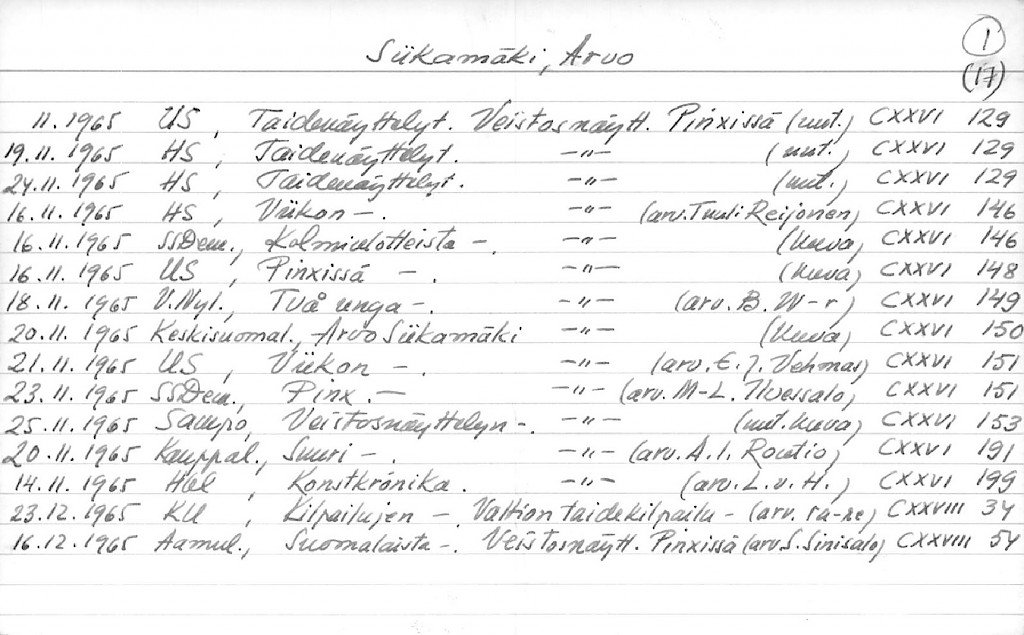 1
Siikamäki, Arvo
(17)
11.1965 US, Taidenäyttelyt. Veistosnäytt. Pinxissä (uut.) CXXVI 129
19.11.1965 HS, Taidenäyttelyt. -"- (uut.) CXXVI 129
24.11.1965 HS, Taidenäyttelyt. -"- (uut.) CXXVI 129
16.11.1965 HS, Viikon -. -"- (arv. Tuuli Reijonen) CXXVI 146
16.11.1965 SSDem., Kolmiulotteista -. -"- (kuva) CXXVI 146
16.11.1965 US, Pinxissä -. -"- (kuva) CXXVI 148
18.11.1965 V.Nyl., Två unga -. -"- (arv. B. W-r) CXXVI 149
20.11.1965 Keskisuomal., Arvo Siikamäki -"- (kuva) CXXVI 150
21.11.1965 US, Viikon -. -"- (arv. E.J. Vehmas) CXXVI 151
23.11.1965 SSDem., Pinx. - -"- (arv. M-L. Ilvessalo) CXXVI 151
25.11.1965 Sampo, Veistosnäyttelyn -. -"- (uut. kuva) CXXVI 153
20.11.1965 Kauppal., Suuri -. -"- (arv. A.I. Routio) CXXVI 191
14.11.1965 Hbl, Konstkrönika. -"- (arv. L.v.H.) CXXVI 199
23.12.1965 KU, Kilpailujen -. Valtion taidekilpailu - (arv. ra-ne) CXXVIII 34
16.12.1965 Aamul., Suomalaista -. Veistosnäytt. Pinxissä (arv. S. Sinisalo) CXXVIII 54